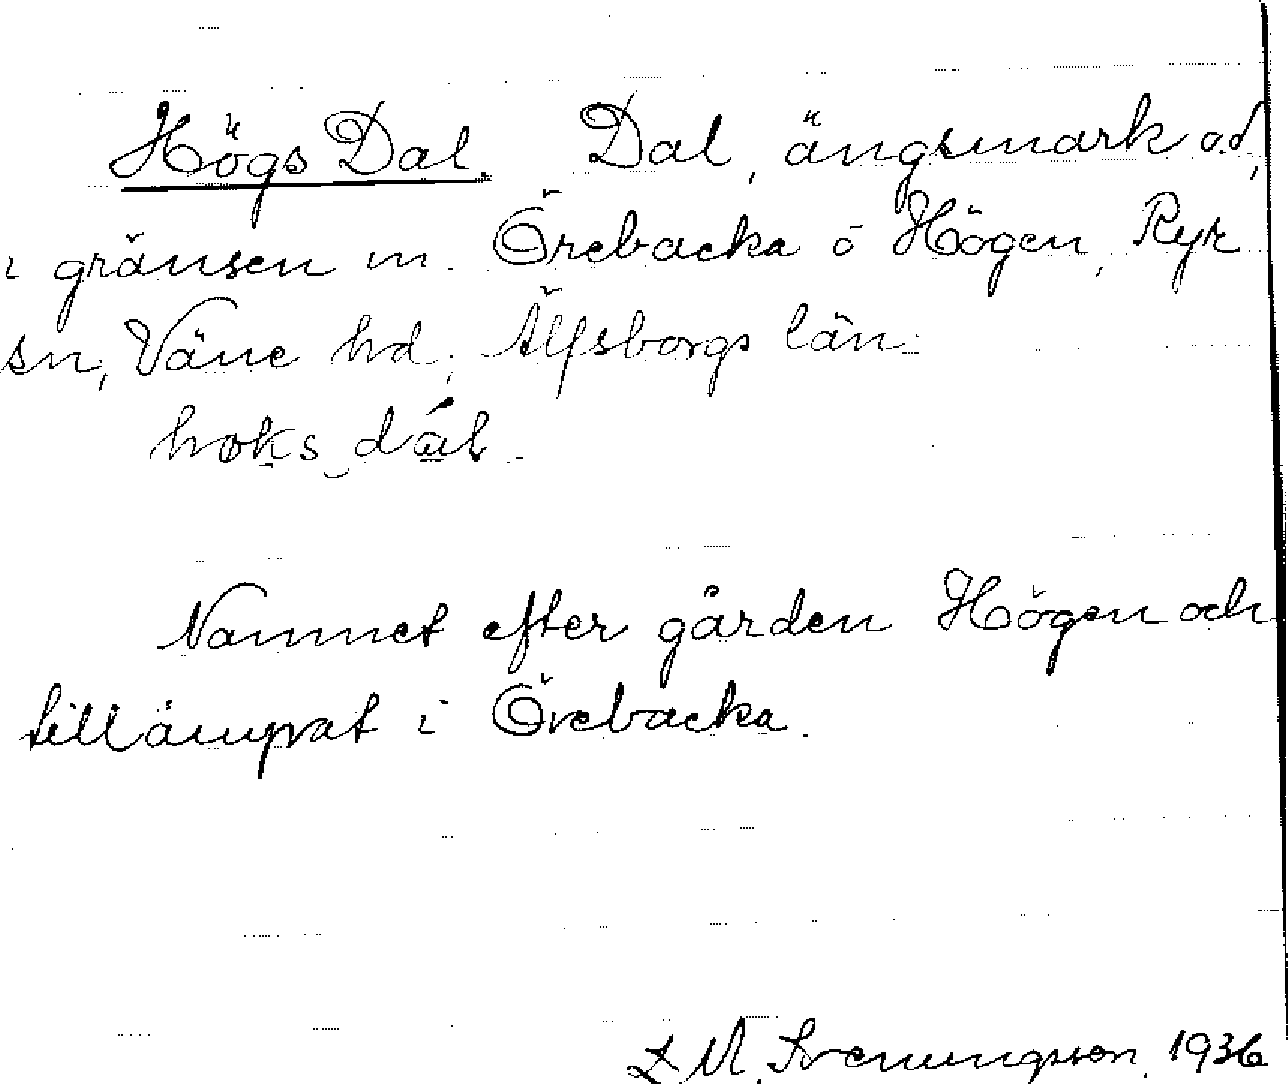 Högs Dal. Dal, ängsmark o.d,
i gränsen m. Örebacka o Högen, Ryr
sn, Väne hd, Älfsborgs län.
høks dál.
Namnet efter gården Högen och
tillämpat i Örebacka.
L M. Svenungsson, 1936